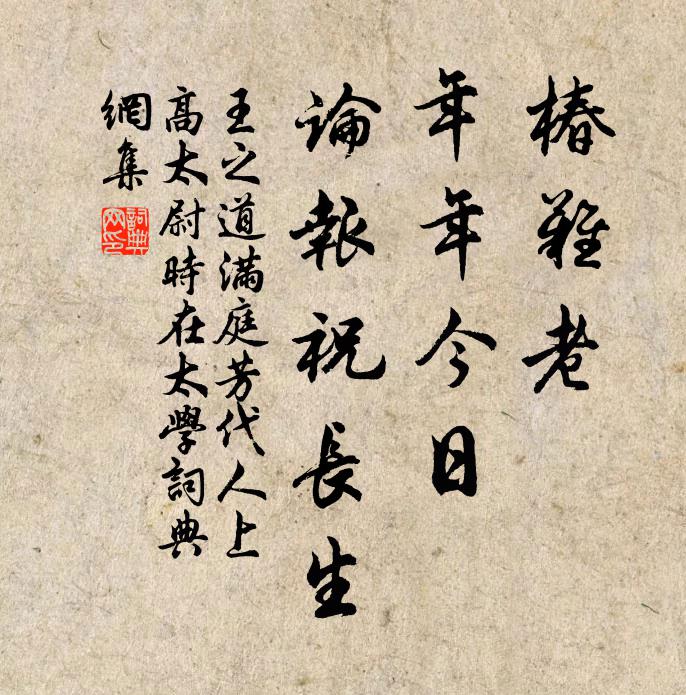 椿難老
年年今日
論報祝長生
王之道滿庭芳代人上
高太尉時在太學詞典
網集
詞典
网印